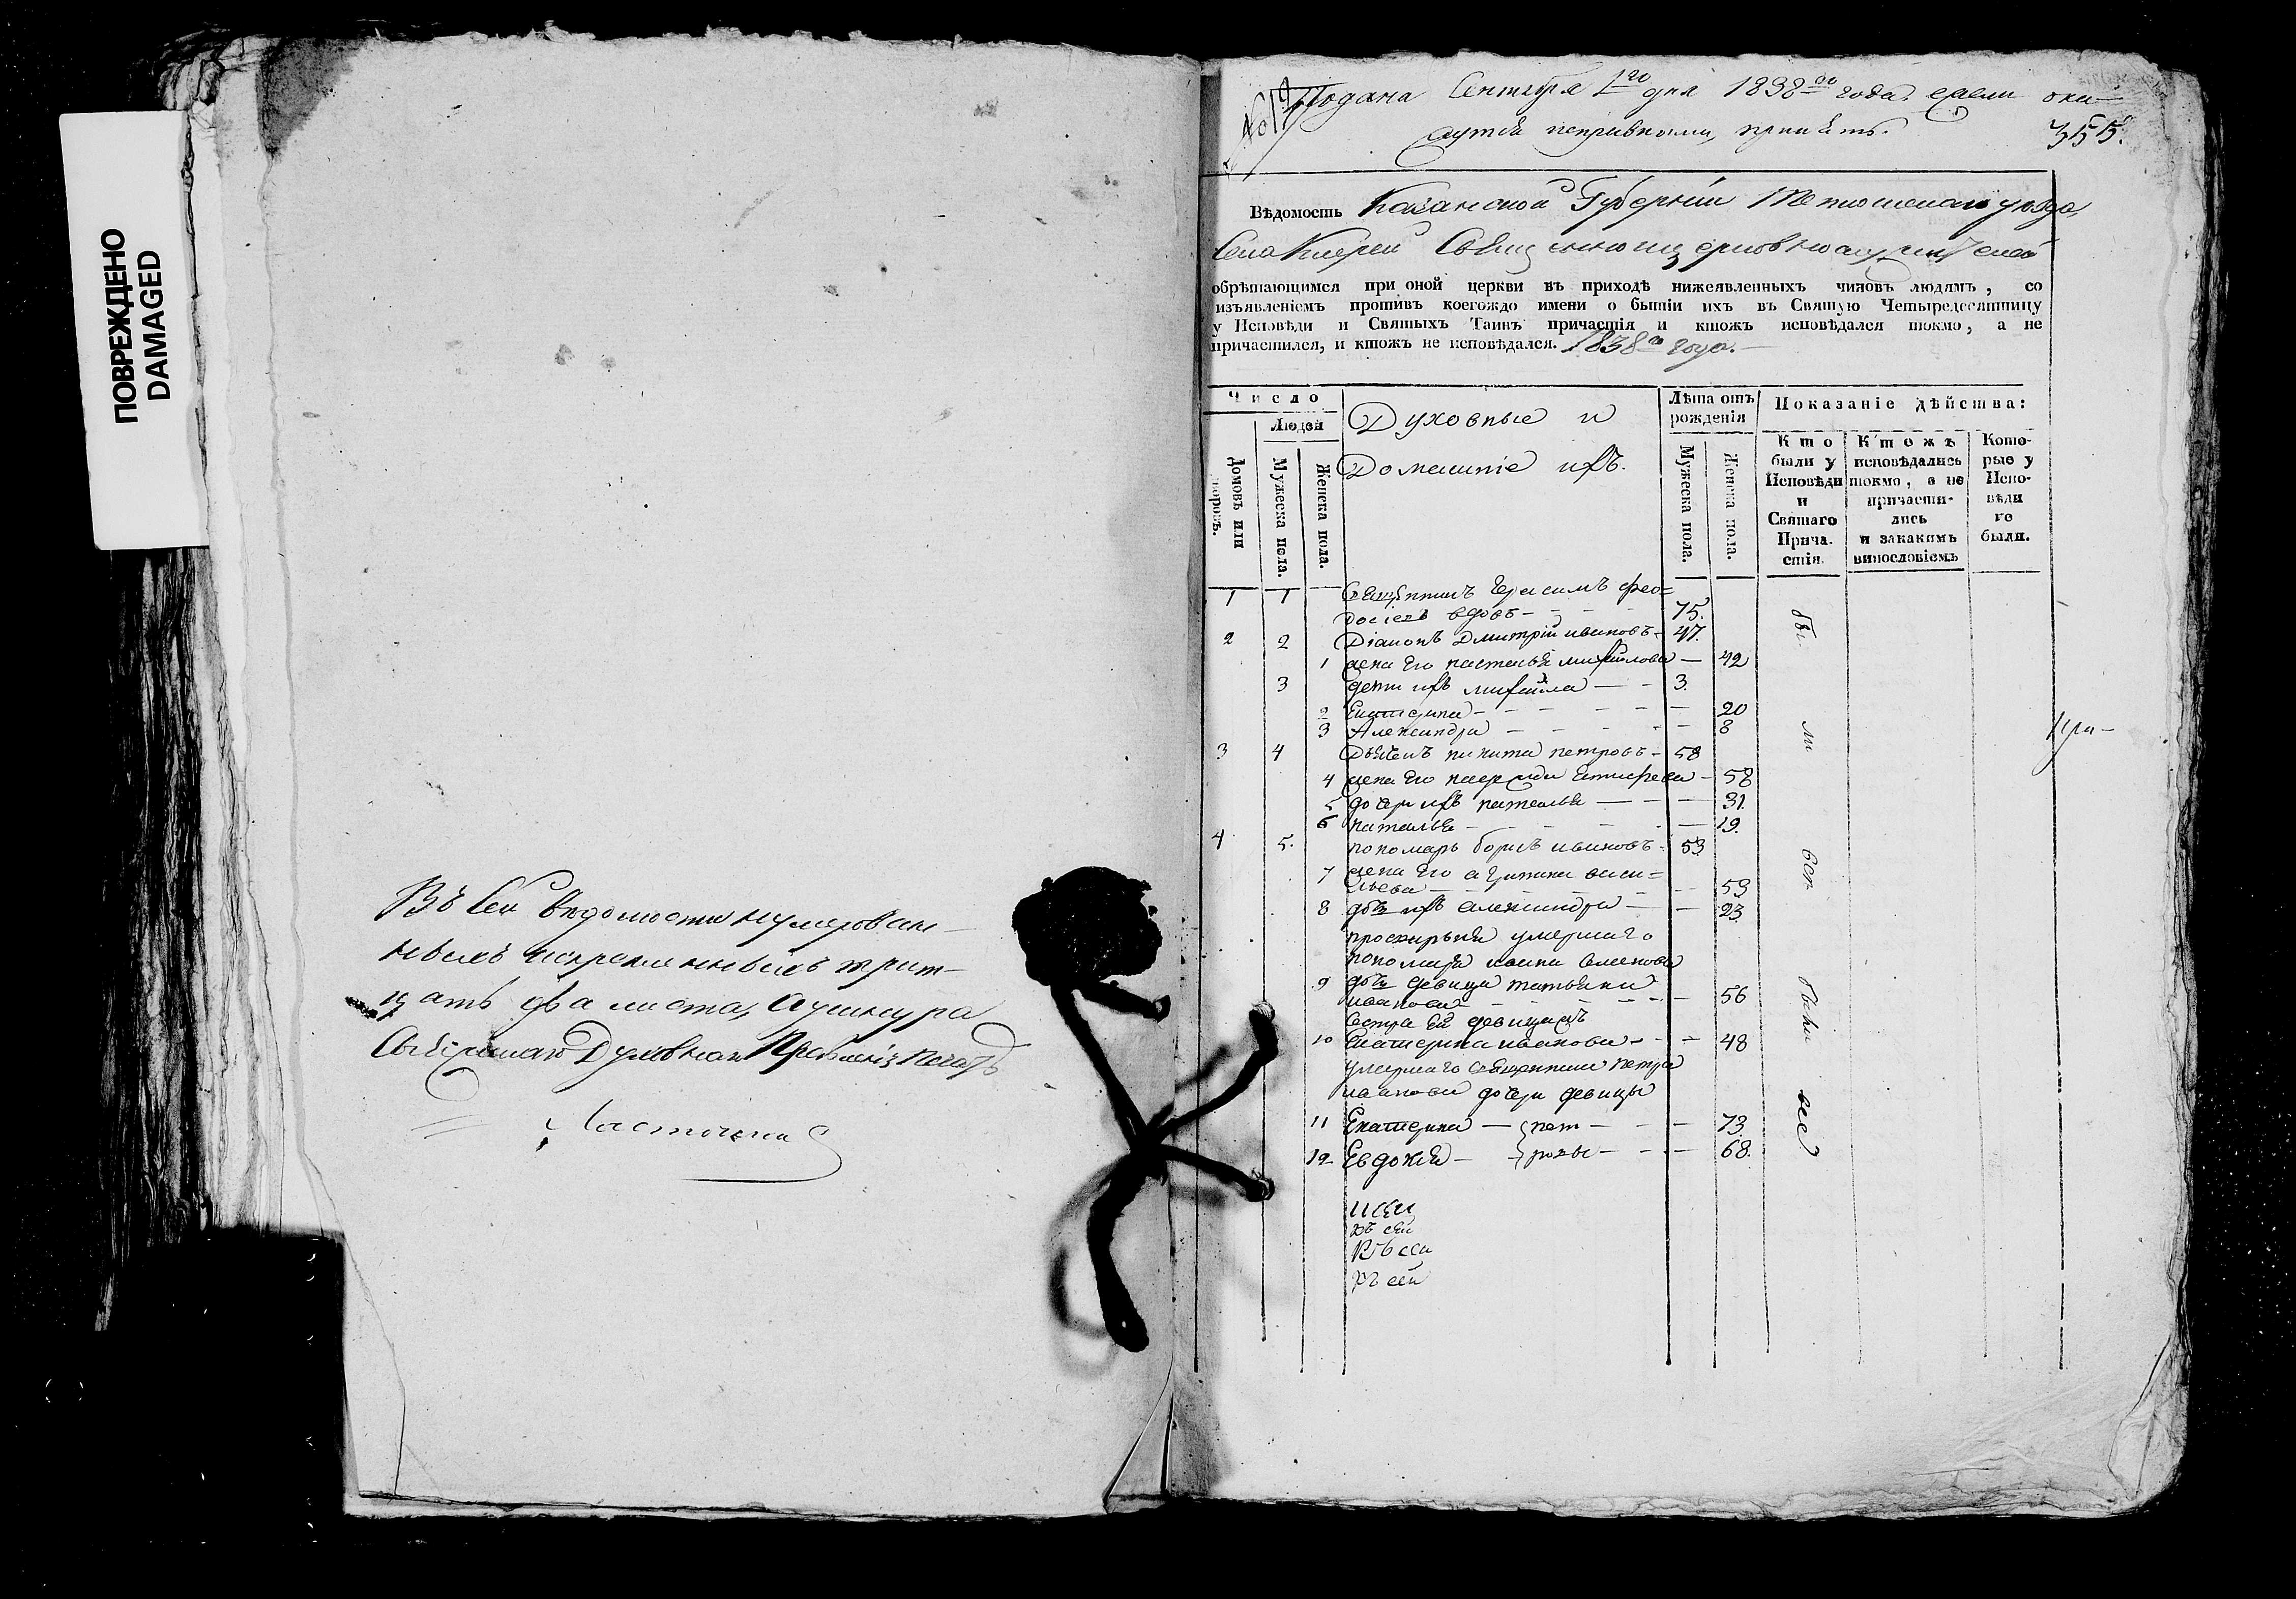 ПОВРЕЖДЕНО
DAMAGED
Въ сей Ведомости нумерован-
ныхъ искрепленныхъ трит-
цать два листа, ушнура
Свіяжскаго Духовнаго Правленія печать
Подана Сентября 1го дня 1838го года, ежели ока-
жутся исправными, принять.
355.
Вѣдомость Казанской Губерніи Тетюшскаго уезда,
Села
обрѣтающимся при оной церкви въ приходѣ нижеявленныхъ чиновъ людямъ, со
изъявленіемъ противъ коегождо имени о бытіи ихъ въ Святую Четыредесятницу
у Исповѣди и Святыхъ Таинъ причастія и ктожъ исповѣдался токмо, а не
причастился, и ктожъ не исповѣдался. 1838го года.
Число
Людей
Домовъ или дворовъ.
Мужеска пола.
Женска пола.
Духовные и
Домашніе ихъ.
Лѣта отъ рожденія
Мужеска пола.
Женска пола.
Показаніе дѣйства:
Кто были у Исповѣди и Святаго Причастія.
Ктожъ исповѣдались токмо, а не причастились и закакимъ винословіемъ
Которые у Исповѣди не были.
1 1 Священникъ Герасимъ Фео-
досіевъ вдовъ 75.
2 2 Діаконъ Дмитрій Ивановъ 47.
1 жена его Наталья Михайлова 42
3 дети ихъ Михаила 3.
2 Екатерина 20
3 Александра 8
3 4 Дьячекъ Никита Петровъ 58
4 жена его 58
5 дочери ихъ Наталья 31.
6 Наталья 19.
4 5. Пономарь Борисъ Ивановъ 53
7 жена его Агрипина Васи-
льева 53
8 дочь ихъ Александра 23
просвирьня умершаго
пономаря Ивана Семенова
9 дочь девица Татьяна
Иванова 56
Сестра ей девица
10 Екатерина Иванова 48
умершаго священника Петра
Иванова дочери девицы
11 Екатерина Пет 73
12 Евдокия ровы 68.
бы
ли
все
были
все
Кра-